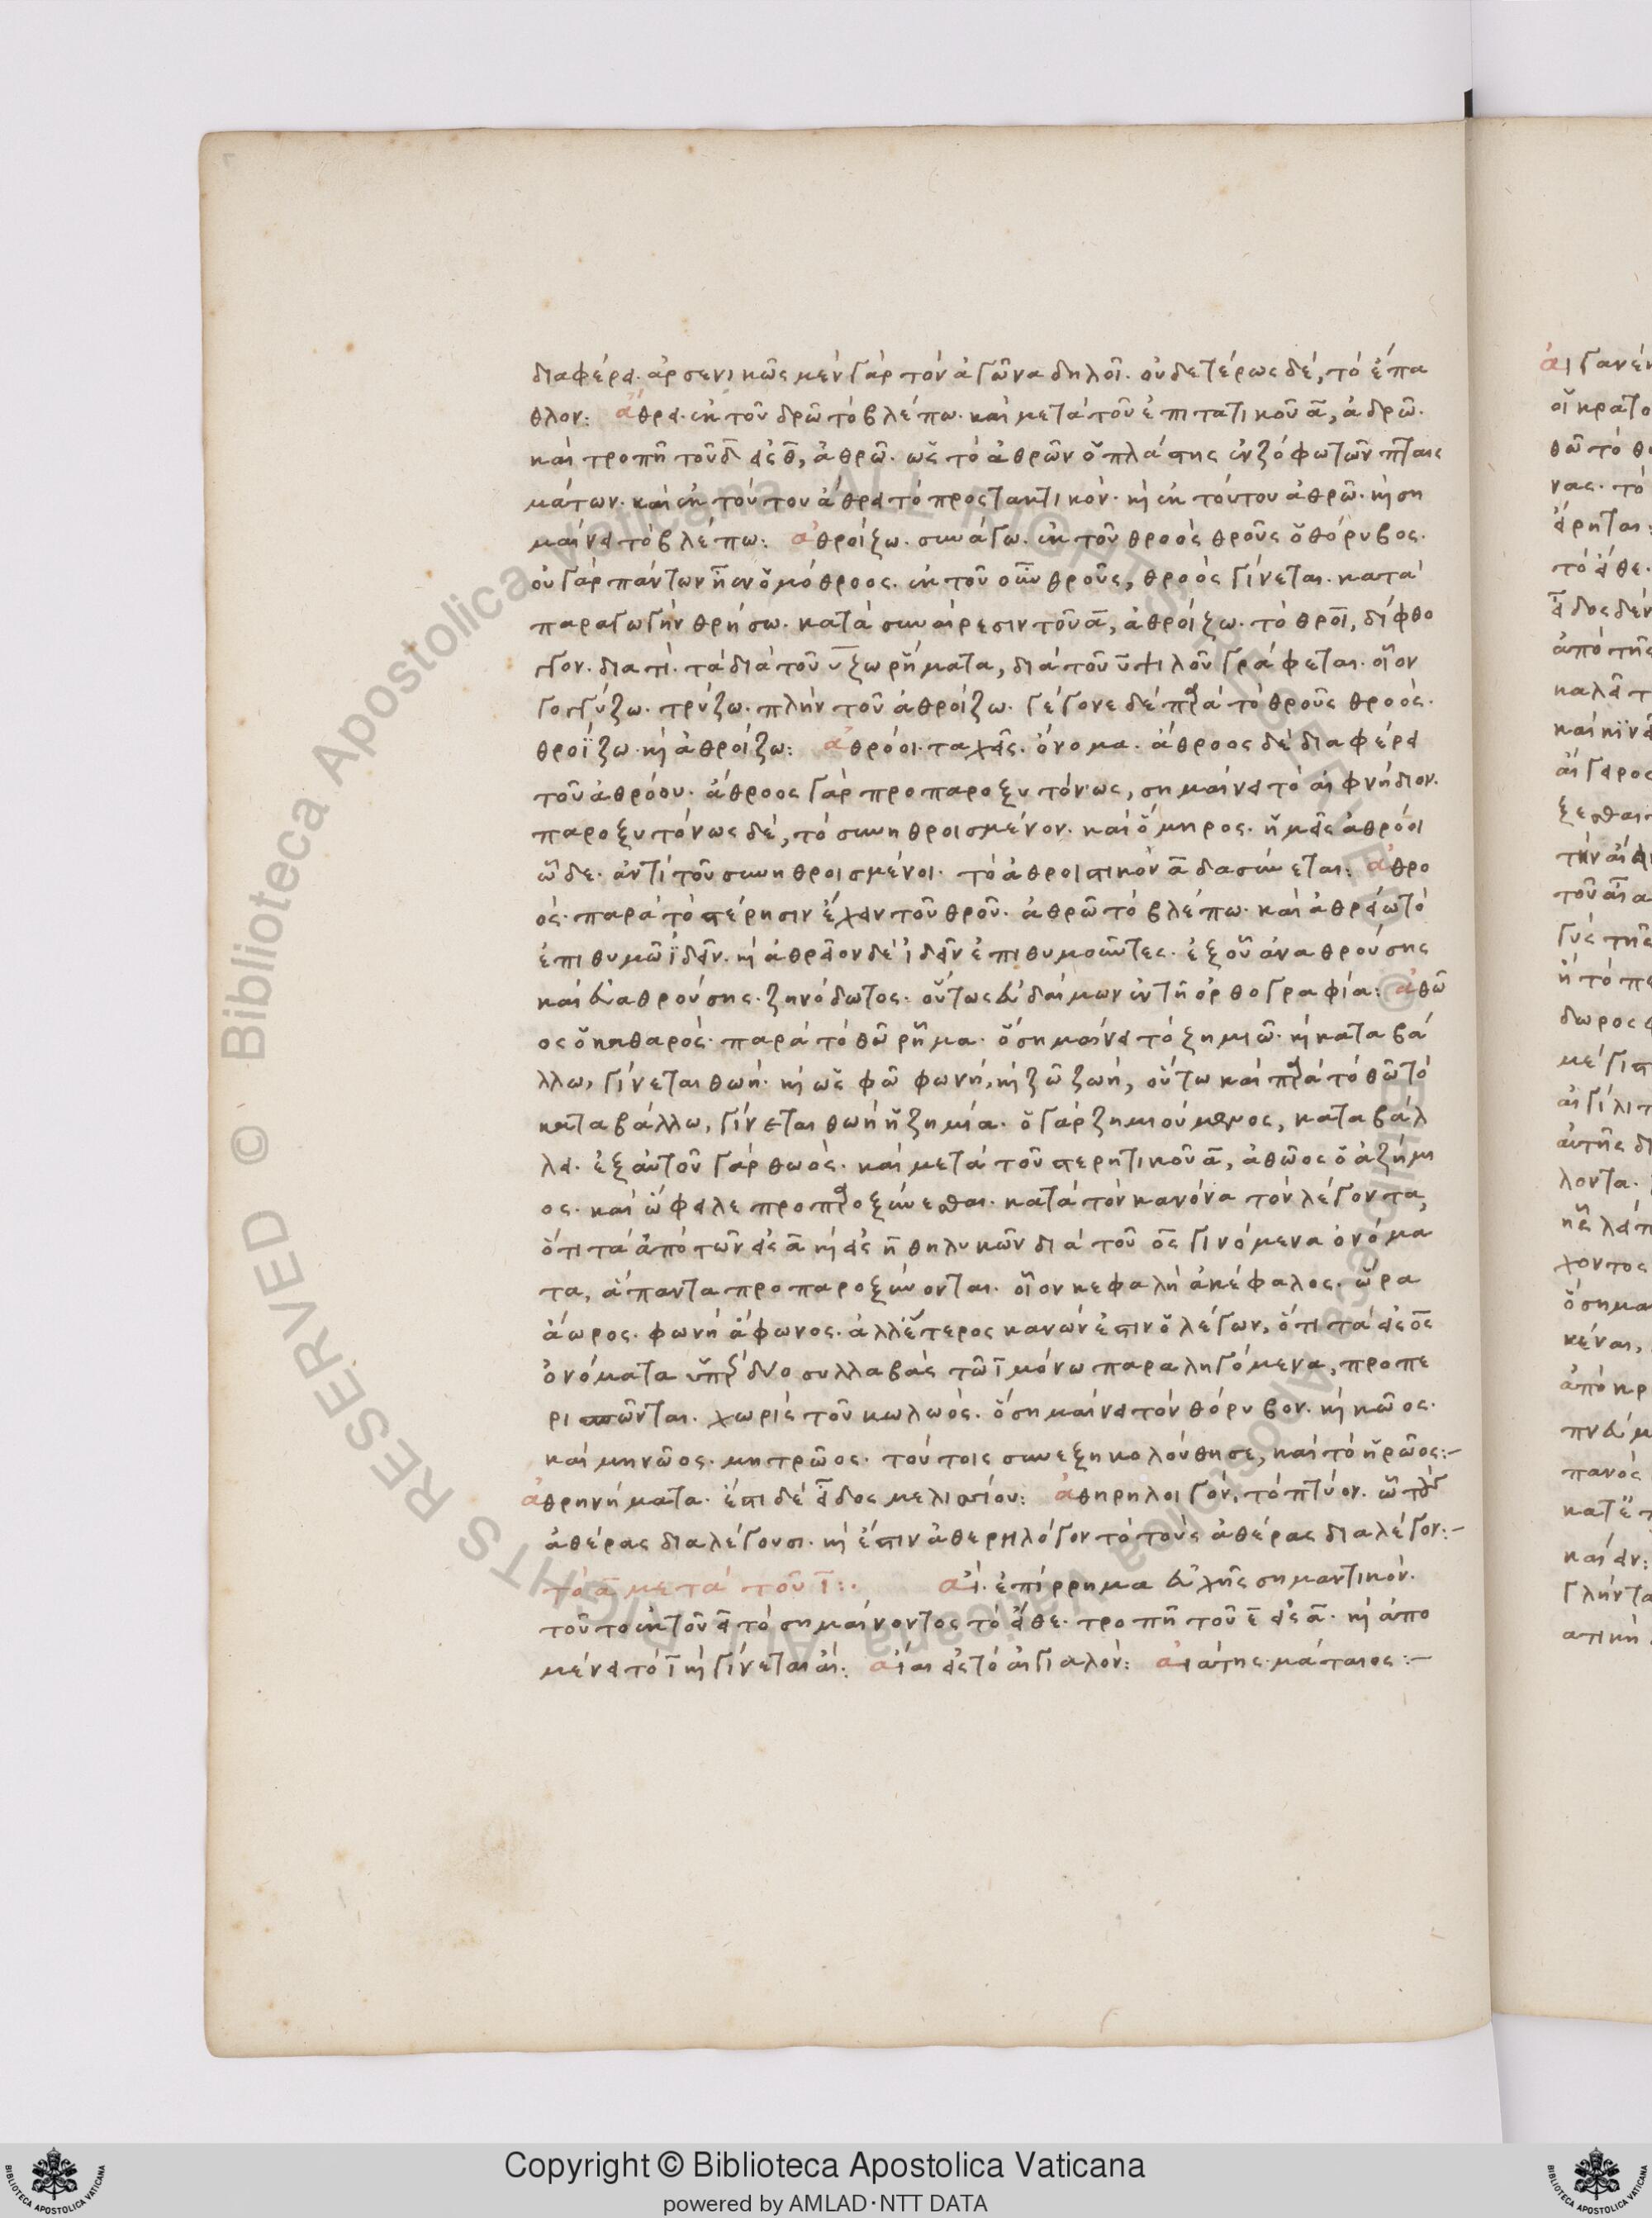 διαφέρει. ἀρσενικῶς μὲν γὰρ τὸν ἀγῶνα δηλοῖ. οὐδετέρως δὲ, τὸ ἔπα
θλον: ἄθρει. ἐκ τοῦ δρῶ τὸ βλέπω. καὶ μετὰ τοῦ ἐπιτατικοῦ α, ἀδρῶ.
καὶ τροπῆ τοῦ δ εἰς θ, ἀθρῶ. ὡς τὸ ἀθρῶν ὁ πλάστης ἐκ ζόφω τῶν πταις
μάτων. καὶ ἐκ τούτου ἄθρει τὸ προστακτικόν. κὶ ἐκ τούτου ἀθρῶ. κὶ ση
μαίνει τὸ βλέπω: ἀθροίζω. συνάγω. ἐκ τοῦ θροὸς θροῦς ὁ θόρυβος.
οὐ γὰρ πάντων ἦεν ὁμόθροος. ἐκ τοῦ οὖν θροῦς, θροὸς γίνεται. κατὰ
παραγωγὴν θρήσω. κατὰ συναίρεσιν τοῦ α, ἀθροίζω. τὸ θροι, δίφθο
γγον. διατί. τὰ διὰ τοῦ υζω ῥήματα, διὰ τοῦ υ ψιλοῦ γράφεται. οἷον
γογγύζω. τρύζω. πλὴν τοῦ ἀθροίζω. γέγονε δὲ παρὰ τὸ θροῦς θροὸς.
θροΐζω κὶ ἀθροίζω: ἀθρόοι. ταχεῖς. ὄνομα. ἄθροος δὲ διαφέρει
τοῦ ἀθρόου. ἄθροος γὰρ προπαροξυτόνως, σημαίνει τὸ αἰφνήδιον.
παροξυτόνως δὲ, τὸ συνηθροισμένον. καὶ ὅμηρος. ἡμεῖς ἀθρόοι
ὧδε. ἀντὶ τοῦ συνηθροισμένοι. τὸ ἀθροιστικὸν α δασύνεται: ἀθρο
ὸς. παρὰ τὸ στέρησιν ἔχειν τοῦ θροῦ. ἀθρῶ τὸ βλέπω. καὶ ἀθρείω τὸ
ἐπιθυμῶ ἰδεῖν. κὶ ἄθρειον δὲ ἰδεῖν ἐπιθυμοῦντες. ἐξ οὗ ἀναθρούσης
καὶ διαθρούσης. ζηνόδωτος. οὕτως εὐδαίμων ἐν τῆ ὀρθογραφία: ἀθῶ
ος ὁ καθαρὸς. παρὰ τὸ θῶ ῥῆμα. ὃ σημαίνει τὸ ζημιῶ. κὶ καταβά
λλω, γίνεται θωὴ. κὶ ὡς φῶ φωνή, κὶ ζῶ ζωή, οὕτω καὶ παρὰ τὸ θῶ τὸ
καταβάλλω, γίνεται θωὴ ἡ ζημία. ὁ γὰρ ζημιούμενος, καταβάλ
λει. ἐξ αὐτοῦ γὰρ θωὸς. καὶ μετὰ τοῦ στερητικοῦ α, ἀθῶος ὁ ἀζήμι
ος. καὶ ὤφειλε προπαροξύνεσθαι. κατὰ τὸν κανόνα τὸν λέγοντα,
ὅτι τὰ ἀπὸ τῶν εἰς α κὶ εἰς η θηλυκῶν διὰ τοῦ ος γινόμενα ὀνόμα
τα, ἅπαντα προπαροξύνονται. οἷον κεφαλὴ ἀκέφαλος. ὥρα
ἄωρος. φωνὴ ἄφωνος. ἀλλ' ἕτερος κανών ἐστιν ὁ λέγων, ὅτι τὰ εἰς ος
ὀνόματα ὑπὲρ δύο συλλαβὰς τῶ ι μόνω παραληγόμενα, προπε
ρισπῶνται. χωρὶς τοῦ κωλωὸς. ὃ σημαίνει τὸν θόρυβον. κὶ κῶος.
καὶ μηνῶος. μητρῶος. τούτοις συνεξηκολούθησε, καὶ τὸ ἡρῶος:-
ἀθρηνήματα. ἔστι δὲ εἶδος μελισσίου: ἀθηρηλοιγόν. τὸ πτύον. ὧ τοὺς
ἀθέρας διαλέγουσι. κὶ ἔστιν ἀθερηλόγον τὸ τοὺς ἀθέρας διαλέγον:-
τὸ α μετὰ τοῦ ι:. αἰ. ἐπίρρημα εὐχῆς σημαντικόν.
τοῦτο ἐκ τοῦ ει τὸ σημαίνοντος τὸ εἴθε. τροπῆ τοῦ ε εἰς α. κὶ ἀπο
μένει τὸ ι κὶ γίνεται αἰ: αἰαι εἰς τὸ αἰγιαλόν: αἰάτης. μάταιος:-